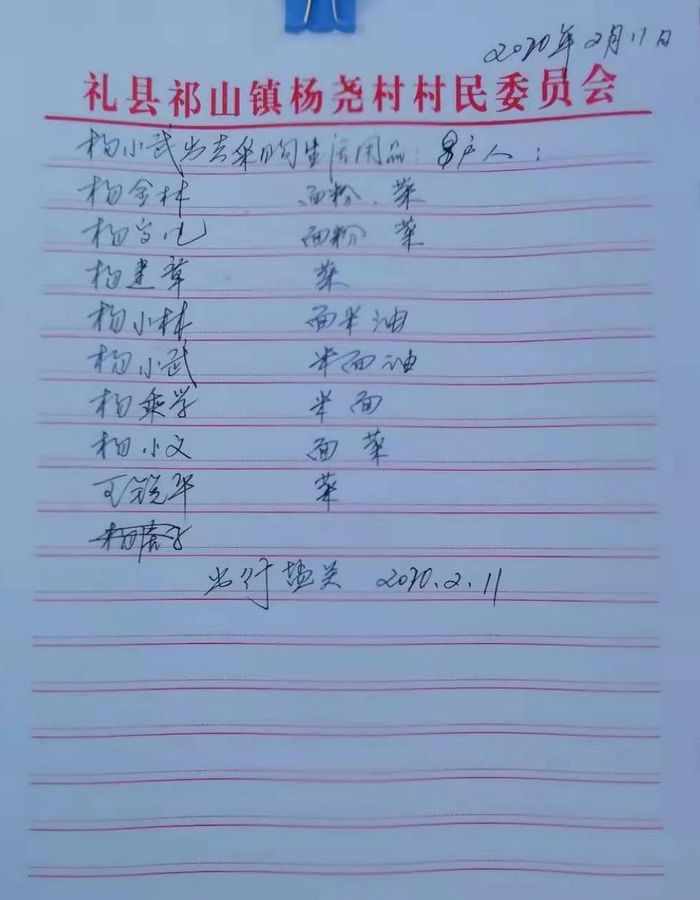 2020年2月11日
礼县祁山镇杨尧村村民委员会
杨小武出去采购生活用品: 户人:
杨金林 面粉、菜
杨 面粉 菜
杨建章 菜
杨小林 面米油
杨小武 米面油
杨乘学 米面
杨小文 面菜
王锐华 菜
出行盐关 2020.2.11